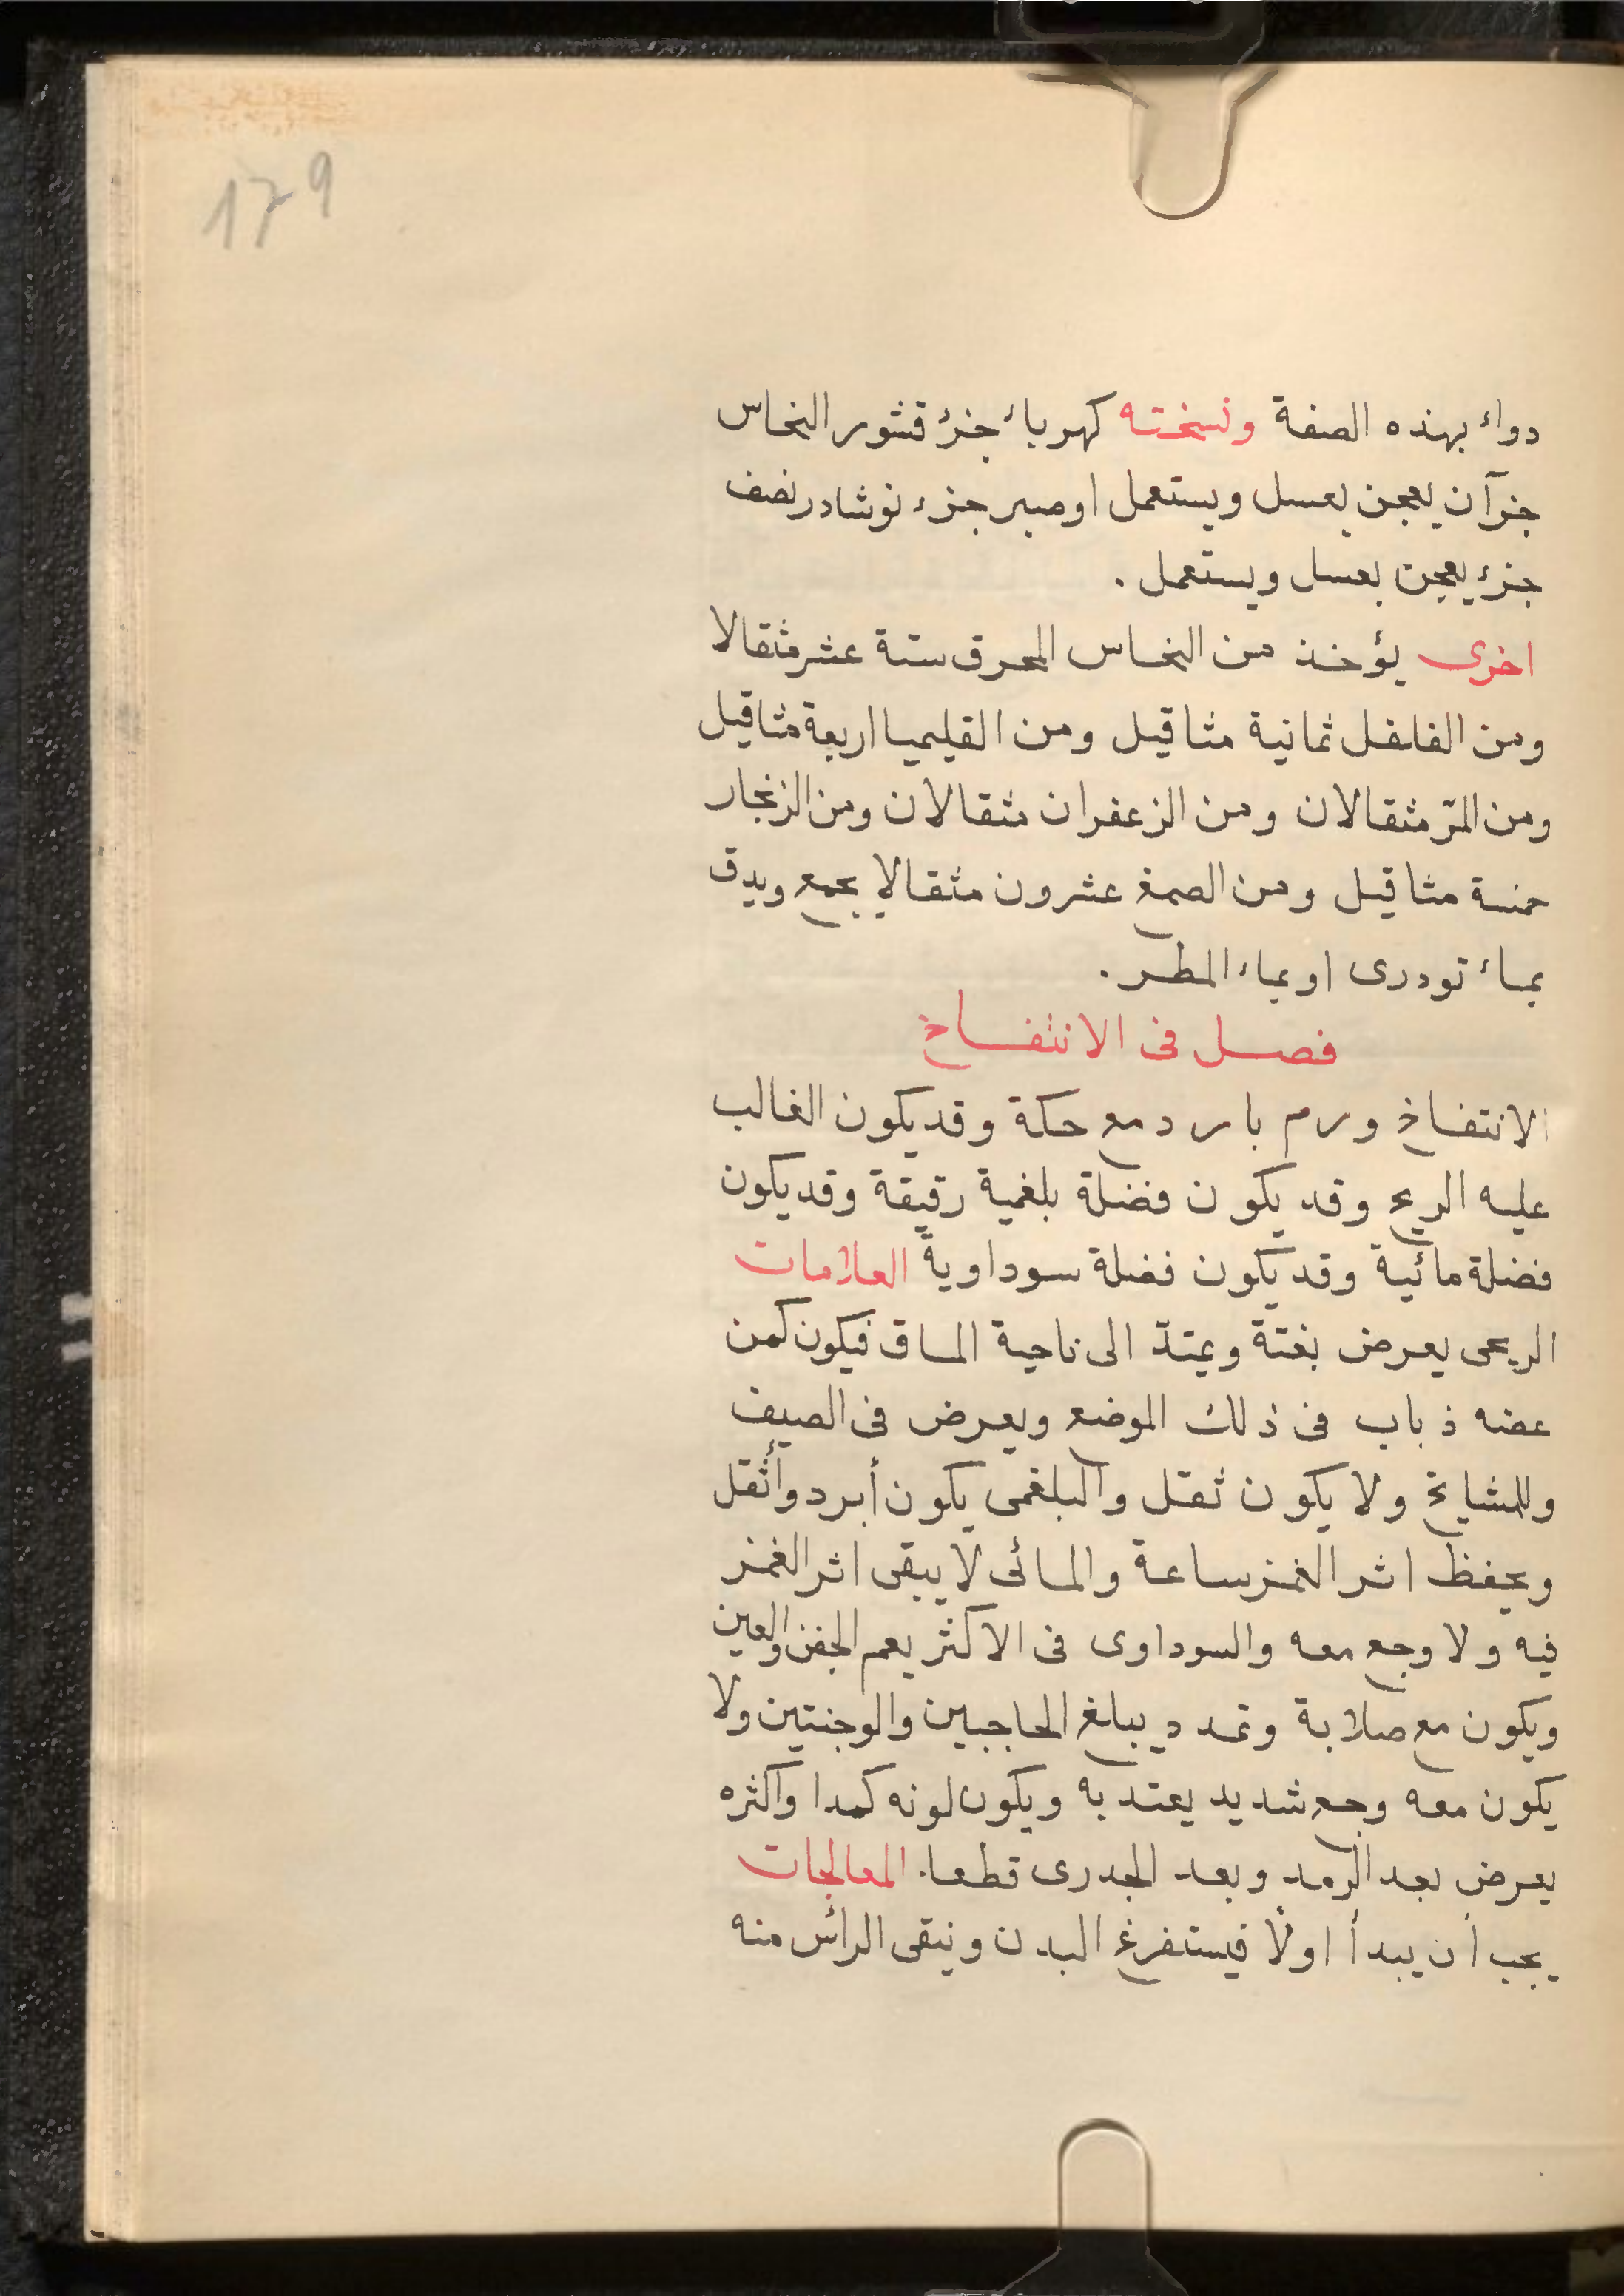 179
دواء بهذه الصفة ونسخته كهرباء جزؤ قشور النحاس
جزآن يعجن بعسل ويستعمل او صبر جزء نوشادر نصف
جزء يعجن بعسل ويستعمل .
اخرى يؤخذ من النحاس المحرق ستة عشر مثقالا
ومن الفلفل ثمانية مثاقيل ومن القليميا اربعة مثاقيل
ومن المرّ مثقالان ومن الزعفران مثقالان ومن الزنجار
خمسة مثاقيل ومن الصمغ عشرون مثقالا يجمع ويدق
بماء تودرى او بماء المطر .
فصل فى الانتفاخ
الانتفاخ ورم بارد مع حكة وقد يكون الغالب
عليه الريح وقد يكون فضلة بلغمية رقيقة وقد يكون
فضلة مائية وقد يكون فضلة سوداوية العلامات
الريحى يعرض بغتة ويمتدّ الى ناحية الماق فيكون كمن
عضه ذباب فى ذلك الموضع ويعرض فى الصيف
وللمشايخ ولا يكون ثقل والبلغمى يكون أبرد وأثقل
ويحفظ اثر الغمز ساعة والمائى لا يبقى اثر الغمز
فيه ولا وجع معه والسوداوى فى الاكثر يعم الجفن والعين
ويكون مع صلابة وتمدد يبلغ الحاجبين والوجنتين ولا
يكون معه وجع شديد يعتد به ويكون لونه كمدا واكثره
يعرض بعد الرمد وبعد الجدرى قطعا. المعالجات
يجب ان يبدأ اولًا فيستفرغ البدن وينقى الرأس منه